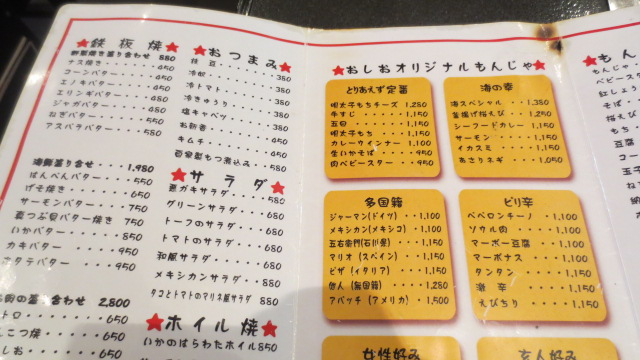 鉄板焼
野菜焼き盛り合わせ 880
ナス焼き・・・・・450
コーンバター・・・・450
エノキバター・・・・450
エリンギバター・・・550
ジャガバター・・・・450
ねぎバター・・・・・550
アスパラバター・・・580
海鮮盛り合せ・・1,980
はんぺんバター・・・550
げそ焼き・・・・・650
サーモンバター・・・750
真つぶ貝バター焼き 750
いかバター・・・・850
カキバター・・・・950
ホタテバター・・・950
お肉の盛り合わせ 2,800
トロ・・・・・650
んこつ焼・・・・650
しお・・・・・650
おつまみ
枝豆・・・・・・380
冷奴・・・・・・380
冷トマト・・・・・380
冷きゅうり・・・・380
塩キャベツ・・・・380
お新香・・・・・・380
キムチ・・・・・・380
自家製もつ煮込み・・580
サラダ
夏ガキサラダ・・・580
グリーンサラダ・・・680
トーフのサラダ・・・680
トマトのサラダ・・・680
和風サラダ・・・・680
メキシカンサラダ・・880
タコとトマトのマリネ風サラダ 880
ホイル焼
いかのはらわたホイル850
おしおオリジナルもんじゃ
とりあえず定番
明太子もちチーズ・1,250
牛すじ・・・・・1,150
五目・・・・・・1,150
明太子もち・・・・1,150
カレーウィンナー・1,100
生いかそば・・・・950
肉ベビースター・・・950
海の幸
海スペシャル・・・1,380
釜揚げ桜えび・・・1,250
シーフードカレー・1,150
サーモン・・・・1,150
イカスミ・・・・1,150
あさりネギ・・・1,050
多国籍
ジャーマン(ドイツ)・・1,150
メキシカン(メキシコ)・1,100
五右衛門(石川県)・・1,150
マリオ(スペイン)・・1,150
ピザ(イタリア)・・・1,150
他人(無国籍)・・・1,250
アパッチ(アメリカ)・1,500
ピリ辛
ペペロンチーノ・・1,100
ソウル肉・・・・1,100
マーボー豆腐・・・1,100
マーボナス・・・1,100
タンタン・・・・1,150
激辛・・・・・1,150
えびちり・・・・1,150
女性好み
もん
もんじゃ
ベビースタ
紅しょう
そば
桜えび
もち
豆腐
コー